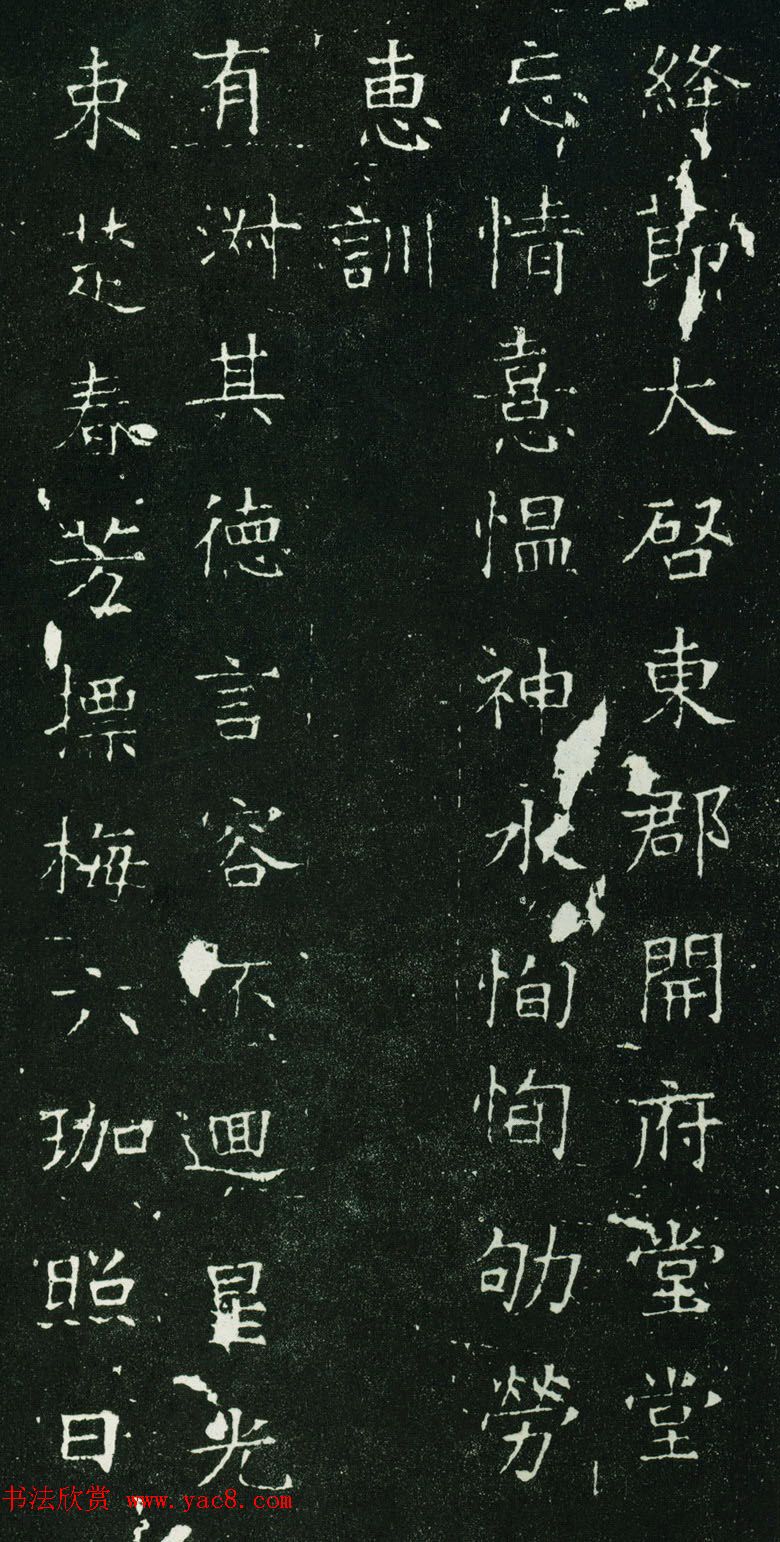 絳節大啓東郡開府堂堂
忘情憙愠神永恂恂劬勞
恵訓
有淑其德言容不迴星光
束楚春芳摽梅六珈照日
书法欣赏 www.yac8.com